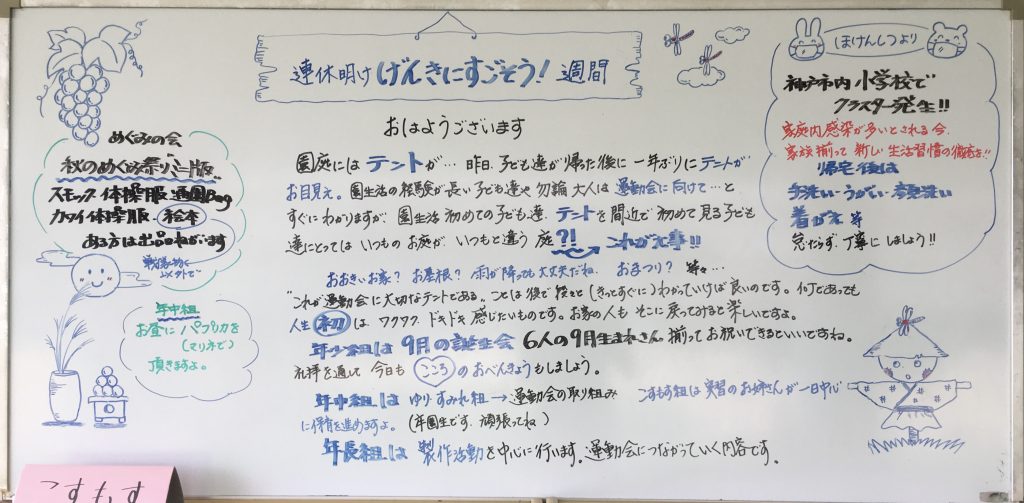 連休明け げんきにすごそう! 週間
おはようございます
園庭には テントが… 昨日、子ども達が帰た後に 一年ぶりにテントが
お目見え。園生活の経験が長い子ども達や 勿論 大人は 運動会に向けて…と
すぐにわかりますが 園生活 初めての子ども達、テントを間近で 初めて見る子ども
達にとっては いつものお庭が、いつもと違う庭?! これが大事!!
おおきいお家? お屋根? 雨が降っても大丈夫だね、おまつり? 等々…
"これが運動会に大切なテントである"ことは後で段々と(きっとすぐに)わかっていけば良いのです。何であっても
人生 初 は ワクワク ドキドキ 感じたいものです。お家の人も そこに戻ってみると楽しいですよ。
年少組は 9月の誕生会 6人の9月生まれさん 揃ってお祝いできるといいですね。
礼拝を通して 今日も こころ のおべんきょうもしましょう。
年中組は ゆり・すみれ組 → 運動会の取り組み
に保育を進めますよ。(卒園生です、頑張ってね)
こすもす組は 実習のお姉さんが一日中心
年長組は 製作活動を中心に行います。運動会につながっていく内容です。
めぐみの会
秋のめぐみ祭り ミニ版
スモック 体操服 通園Bag
カワイ体操服 絵本
ある方は出品ねがいます
年中組
お昼に パプリカを
(マリネで)
頂きますよ。
ほけんしつより
神戸市内 小学校で
クラスター発生!!
家庭内感染が多いとされる今、
家族揃って 新しい生活習慣の徹底を!!
帰宅後は
手洗い・うがい・鼻洗い
着がえ 等
怠たらず、丁寧にしましょう!!
こすもす